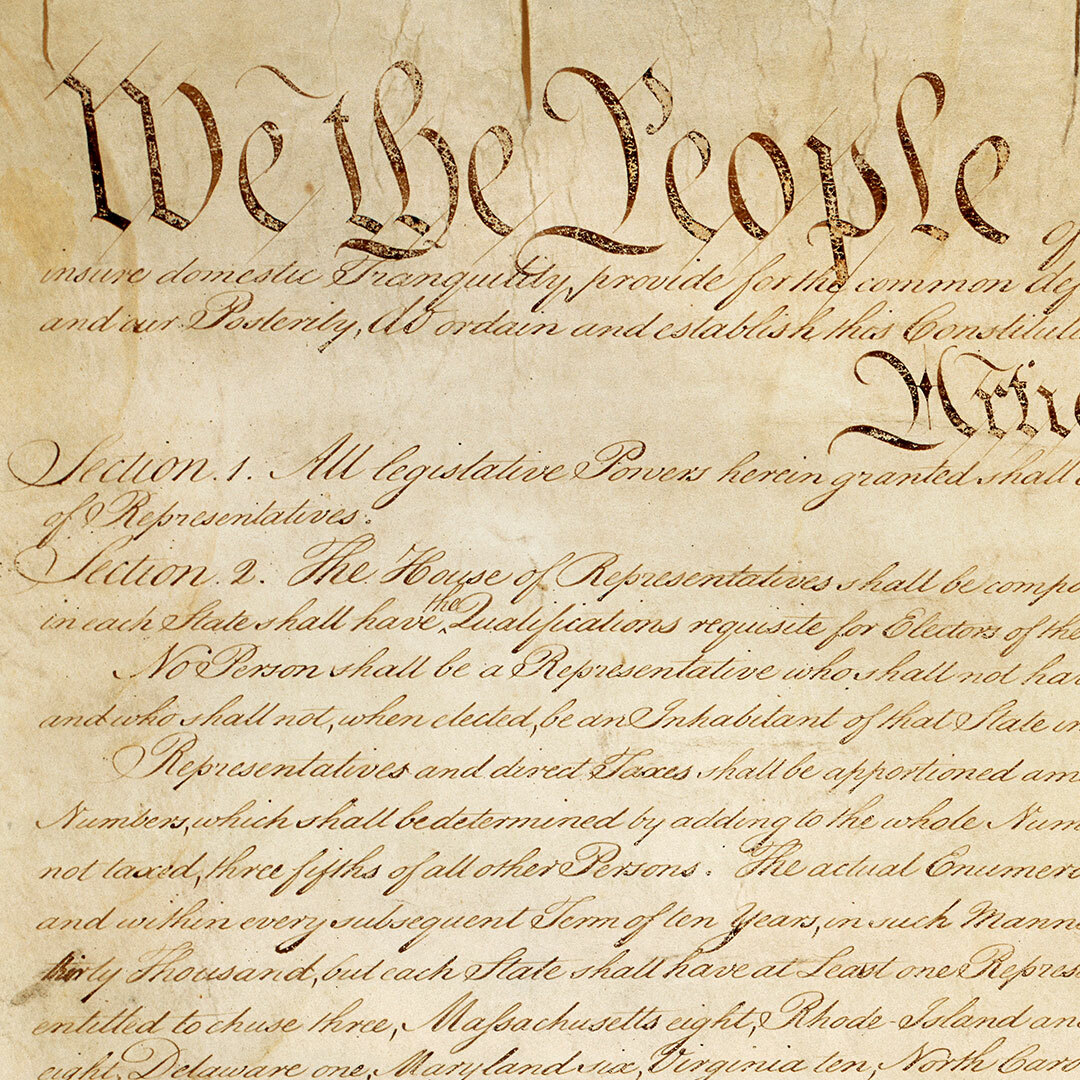 We the People of
insure domestic Tranquility, provide for the common def
and our Posterity, do ordain and establish this Constitut
Artic
Section. 1. All legislative Powers herein granted shall
of Representatives.
Section. 2. The House of Representatives shall be compo
in each State shall have the Qualifications requisite for Electors of the
No Person shall be a Representative who shall not hav
and who shall not, when elected, be an Inhabitant of that State in
Representatives and direct Taxes shall be apportioned am
Numbers, which shall be determined by adding to the whole Num
not taxed, three fifths of all other Persons. The actual Enumera
and within every subsequent Term of ten Years, in such Manne
thirty Thousand, but each State shall have at Least one Repres
entitled to chuse three, Massachusetts eight, Rhode-Island an
eight, Delaware one, Maryland six, Virginia ten, North Caro